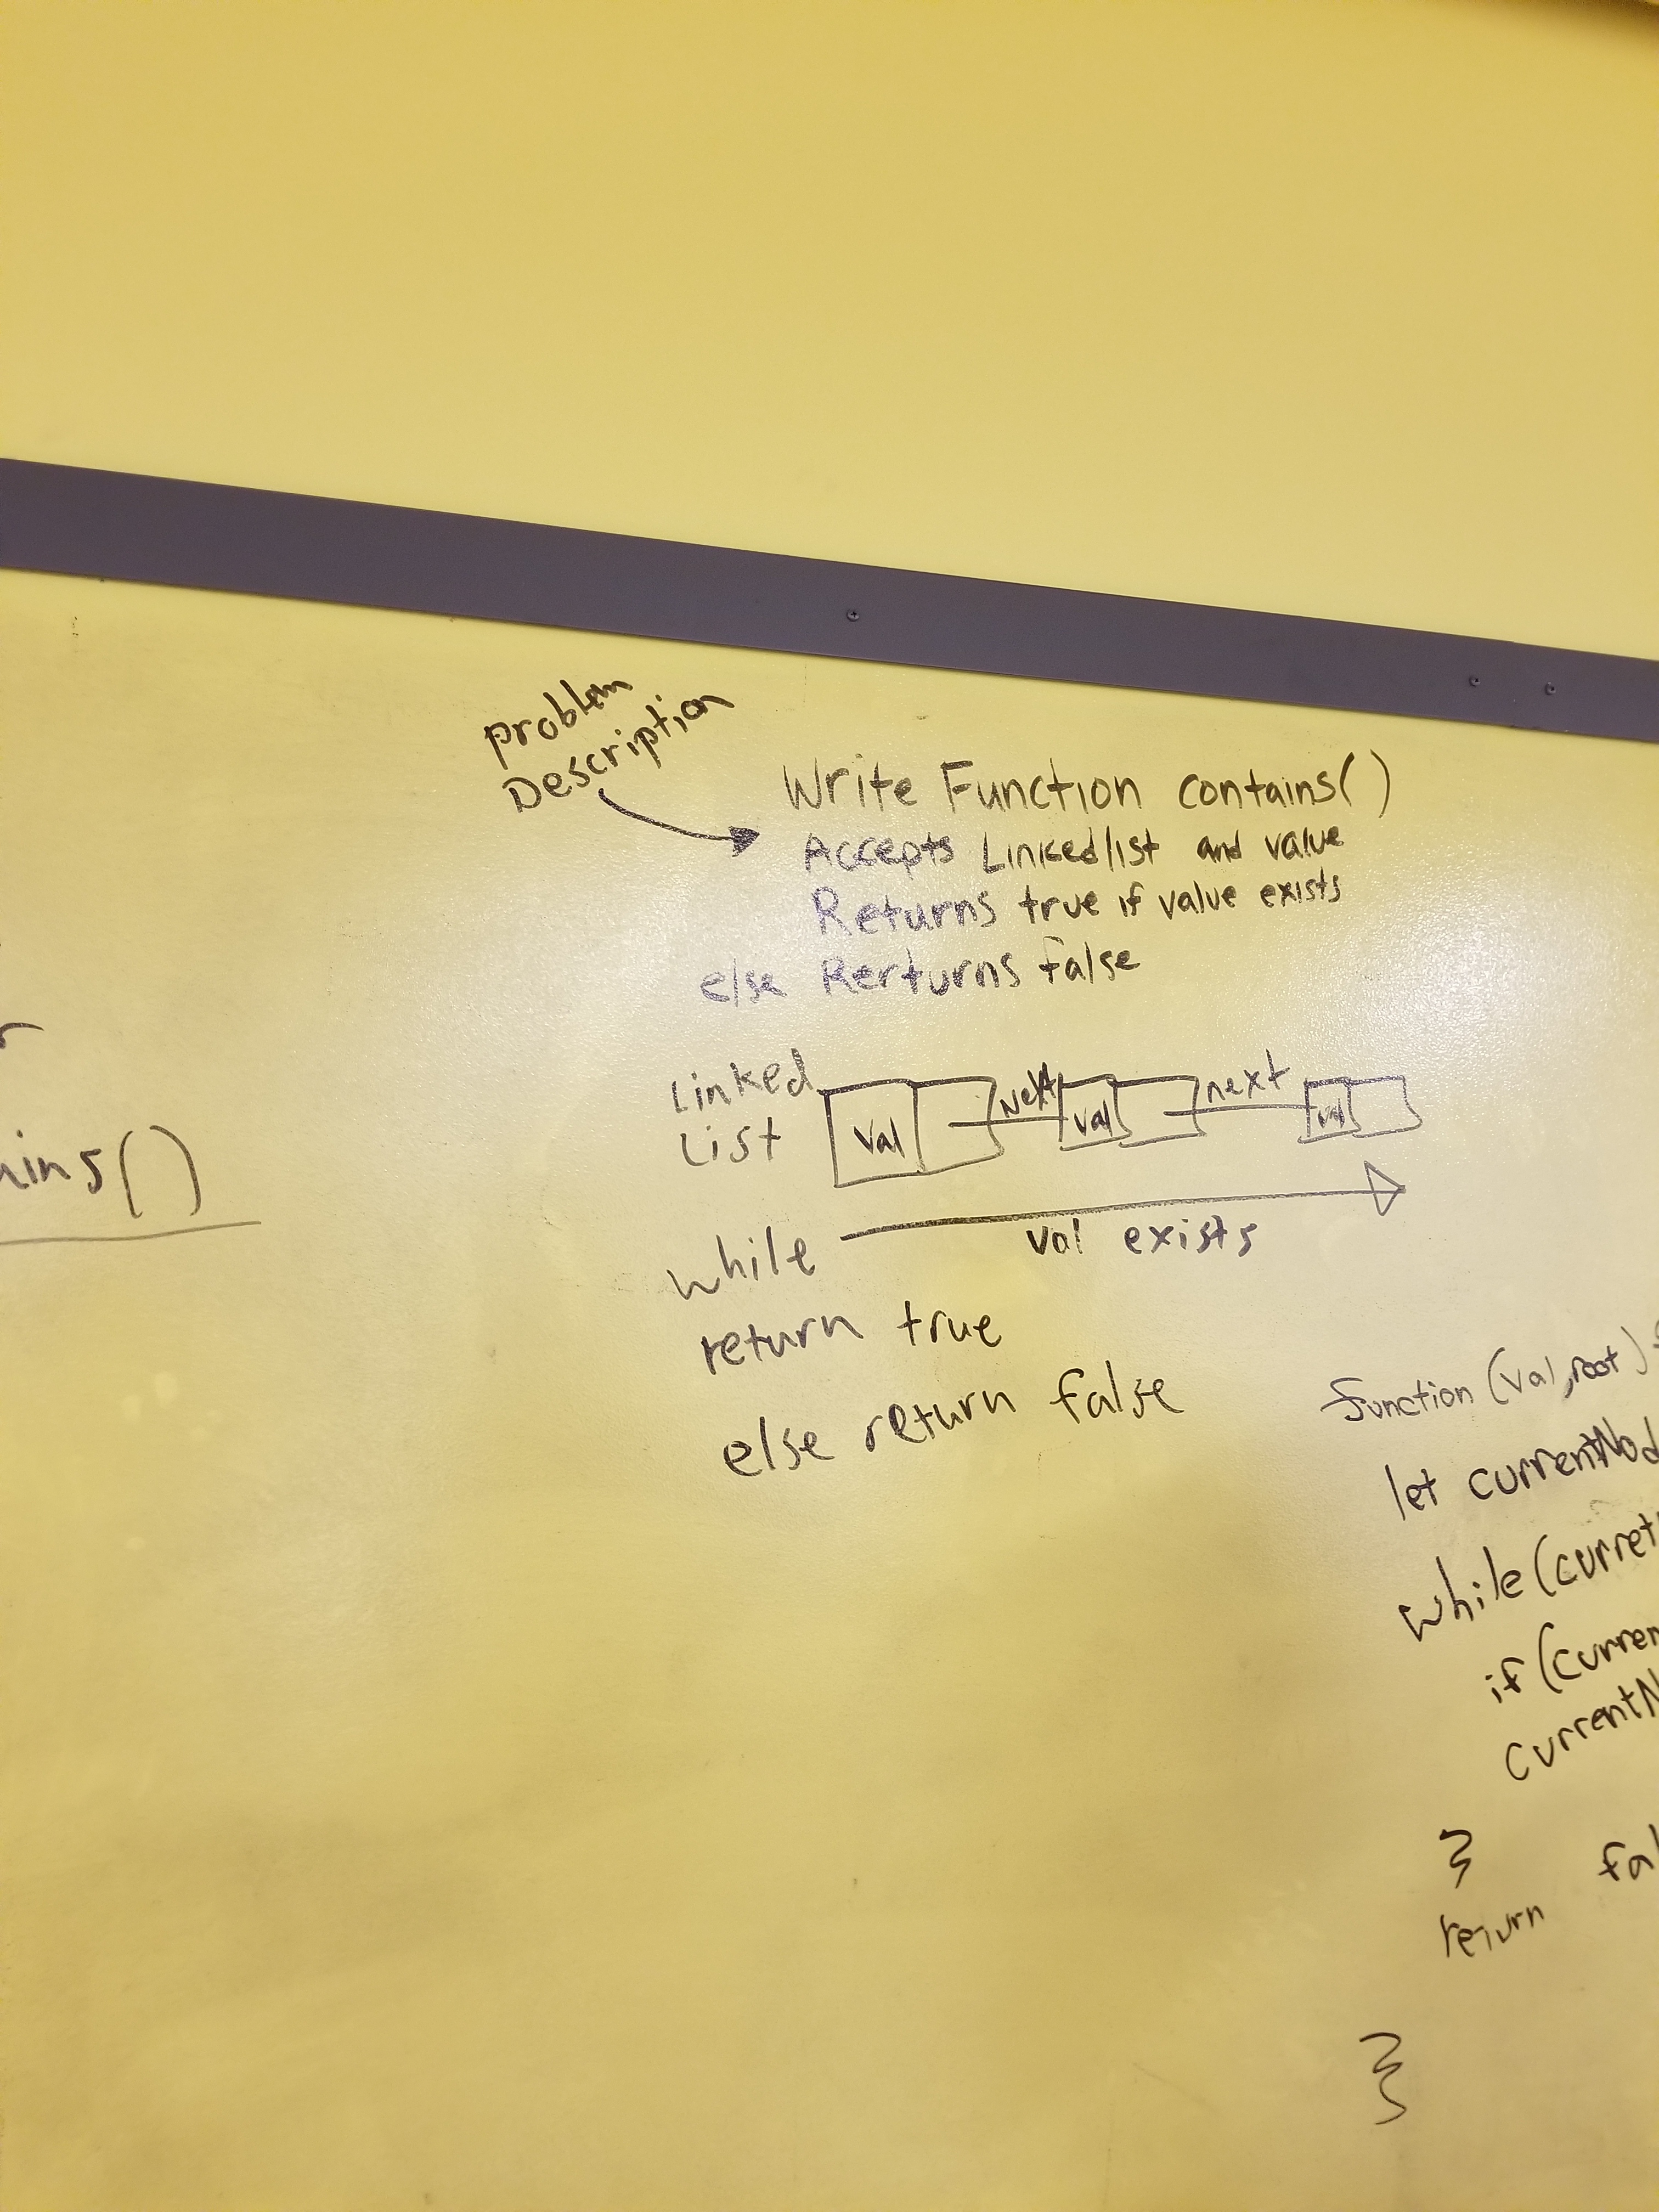 problem
Description
Write Function contains()
Accepts Linkedlist and value
Returns true if value exists
else Rerturns false
Linked
List
val next val next val
while val exists
return true
else return false
function (val, root) {
let currentNod
while (curret
if (curren
currentN
}
return fal
}
ains()